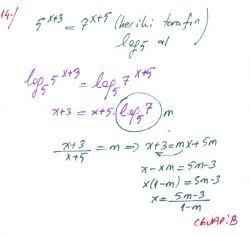 14.) 5^{x+3} = 7^{x+5} (her iki tarafın
log_5 al
log_5 5^{x+3} = log_5 7^{x+5}
x+3 = x+5. log_5 7 m
\frac{x+3}{x+5} = m ⇒ x+3 = mx+5m
x-xm = 5m-3
x(1-m) = 5m-3
x = \frac{5m-3}{1-m}
CEVAP: B